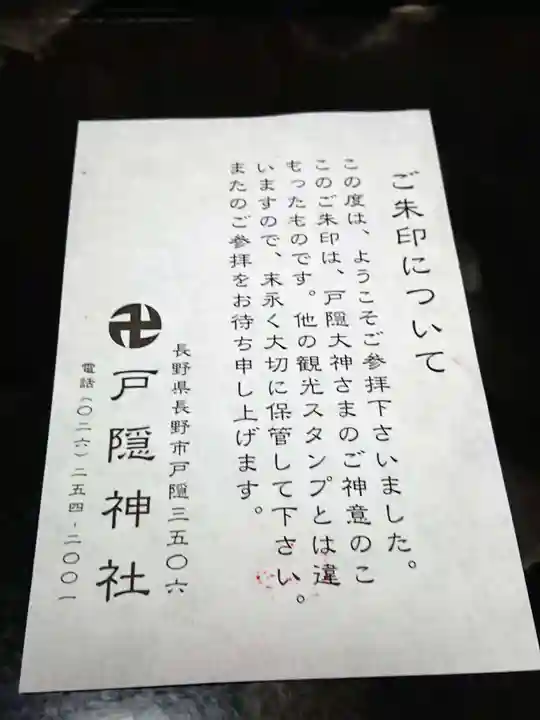 ご朱印について
この度は、ようこそご参拝下さいました。
このご朱印は、戸隠大神さまのご神意のこ
もったものです。他の観光スタンプとは違
いますので、末永く大切に保管して下さい。
またのご参拝をお待ち申し上げます。
長野県長野市戸隠三五〇六
卍戸隠神社
電話(〇二六)二五四-二〇〇一